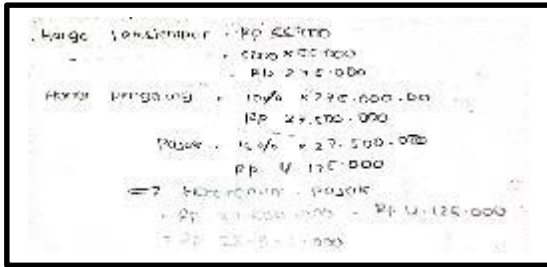 Harga : Rp 55.000
- : 5000 x 55.000
: Rp 275.000
Honor Pengarang : 10% x 275.000.00
Rp 27.500.000
Pajak : 15% x 27.500.000
Rp 4.125.000
=> Honorarium - Pajak
= Rp 27.500.000 - Rp 4.125.000
= Rp .000